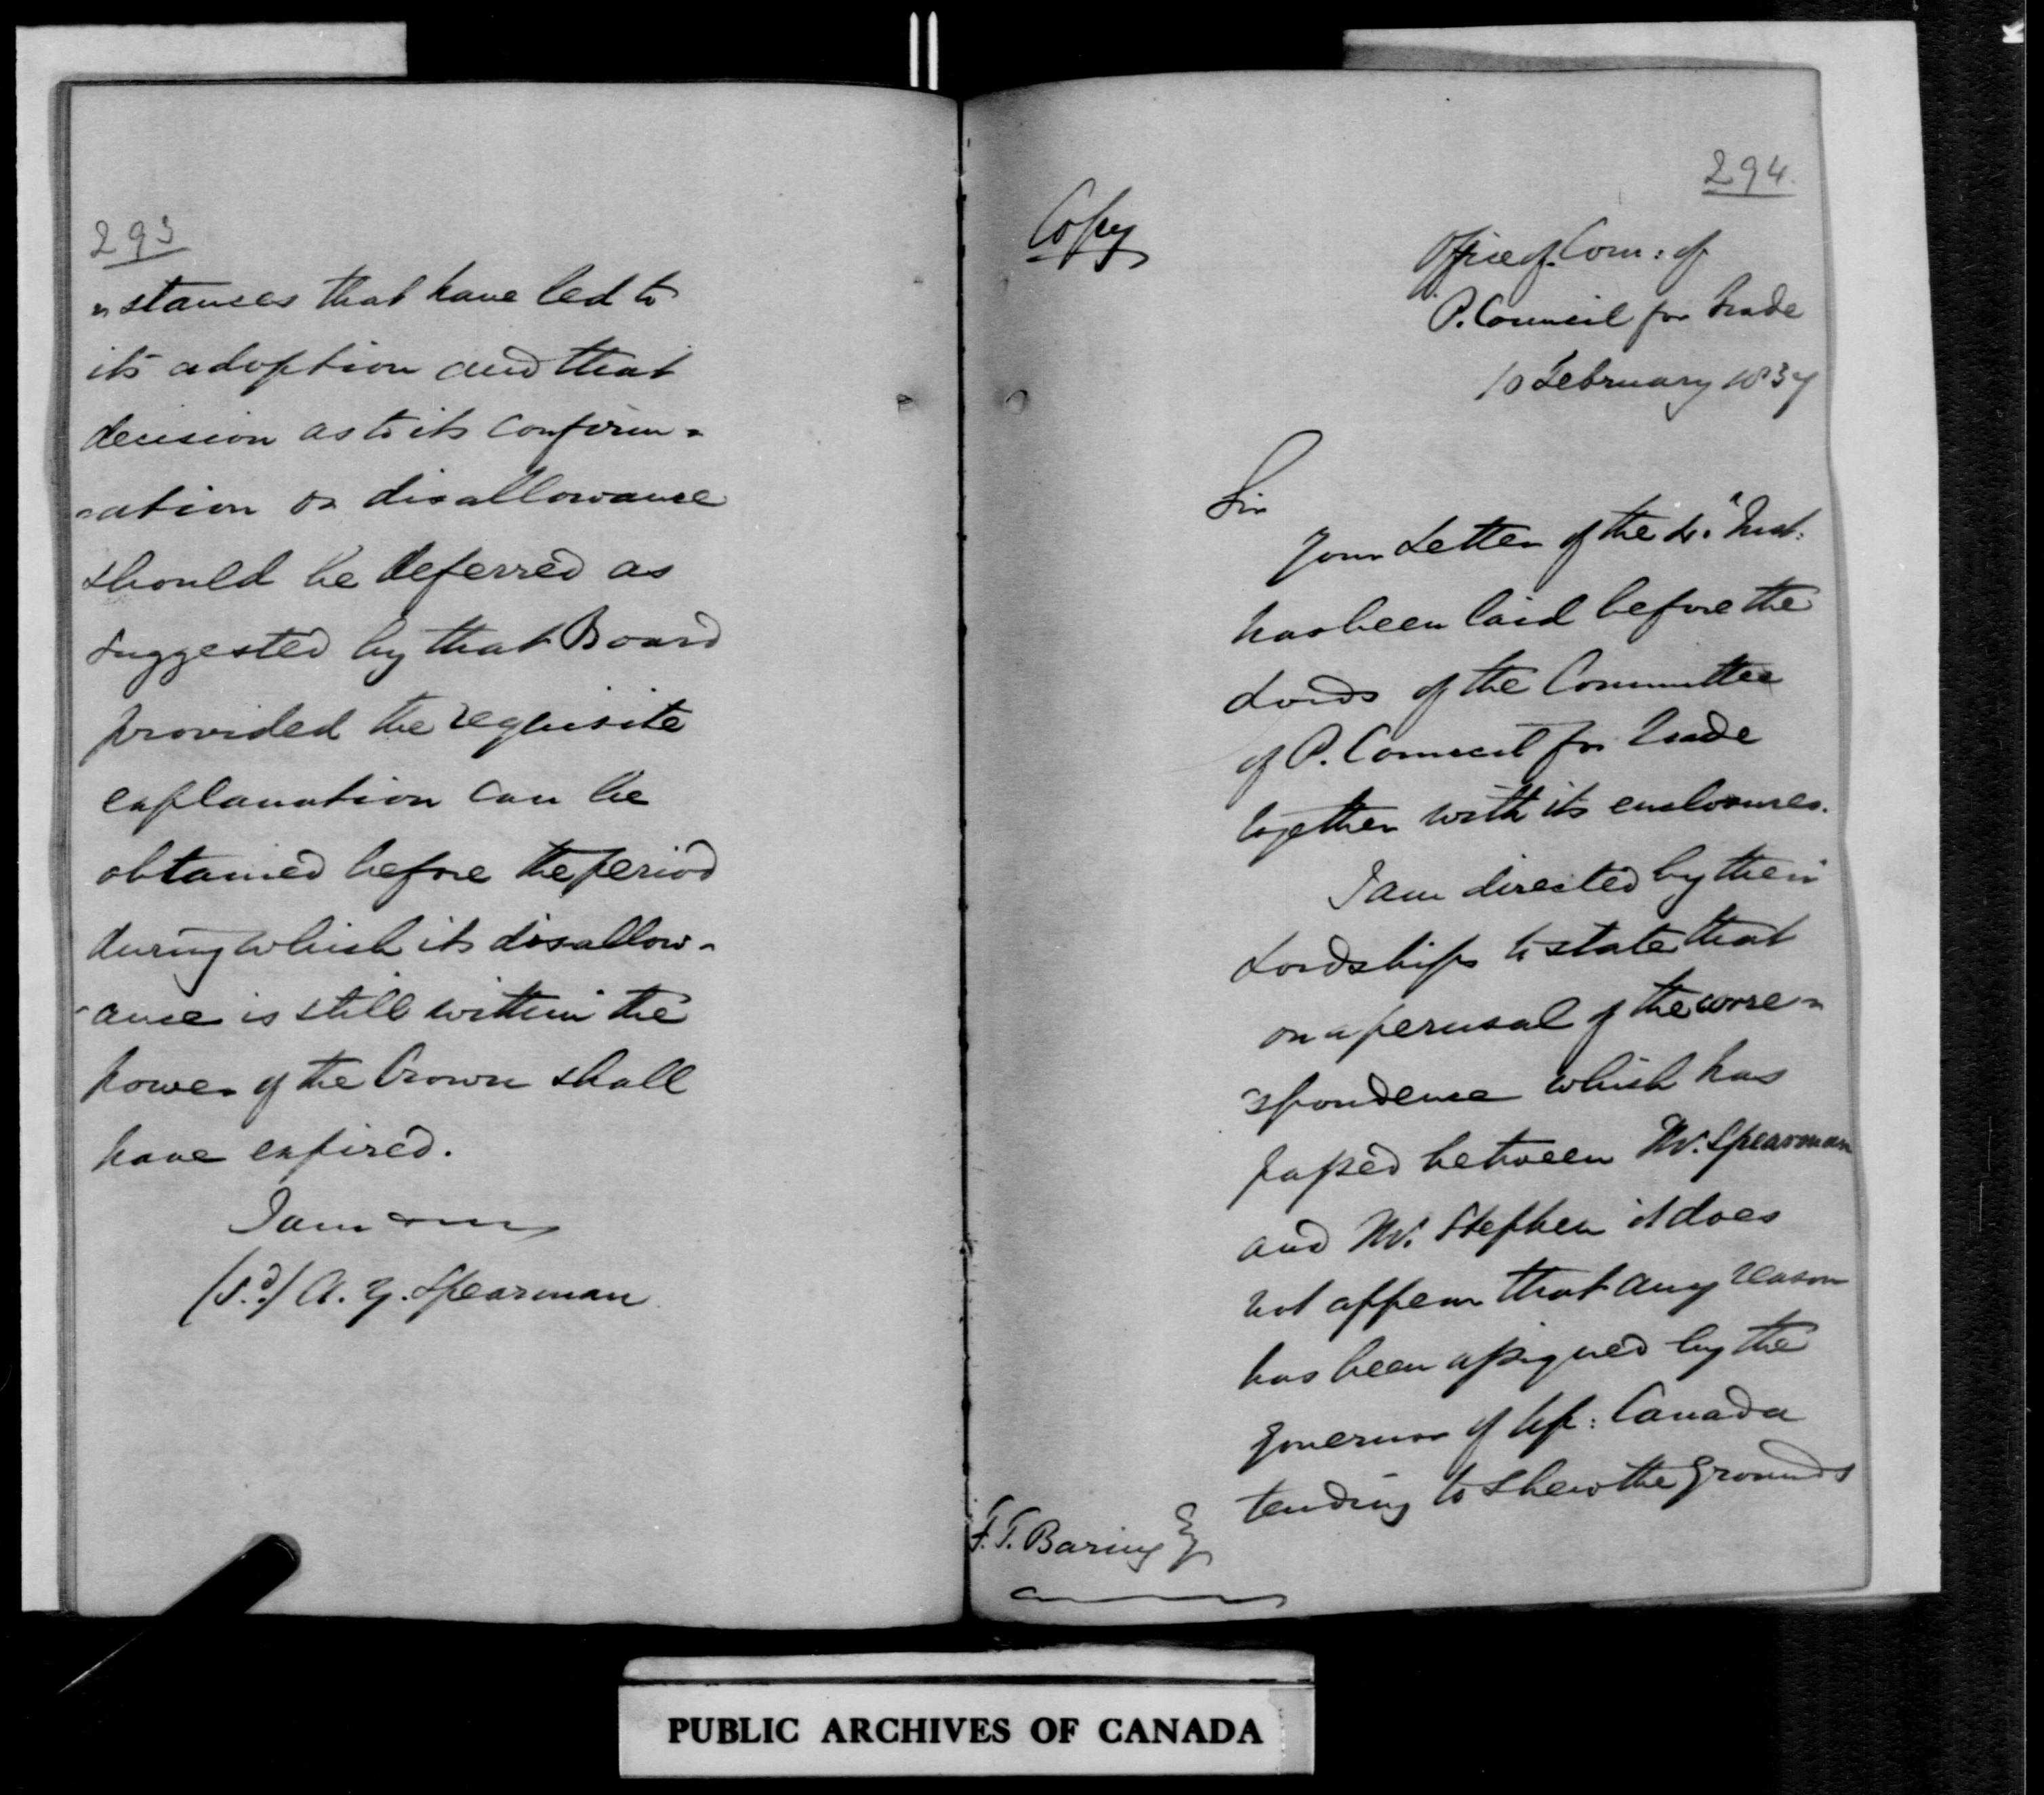 293
"stances that have led to
its adoption and that
decision as to its confirm=
=ation or disallowance
should be deferred as
suggested by that Board
provided the requisite
explanation can be
obtained before the period
during which its disallow-
-ance is still within the
power of the Crown shall
have expired.
I am
(Sd.) A. Y. Spearman
294.
Copy
Office of Com: of
P. Council for Trade
10 February 1837
Sir
Your Letter of the Inst:
has been laid before the
Lords of the Committee
of P. Council for Trade
together with its enclosures.
I am directed by their
Lordships to state that
on a perusal of the corre=
spondence which has
passed between Mr. Spearman
and Mr. Stephen it does
not appear that any reason
has been assigned by the
Governor of Up: Canada
tending to shew the grounds
F. T. Baring Esq
PUBLIC ARCHIVES OF CANADA